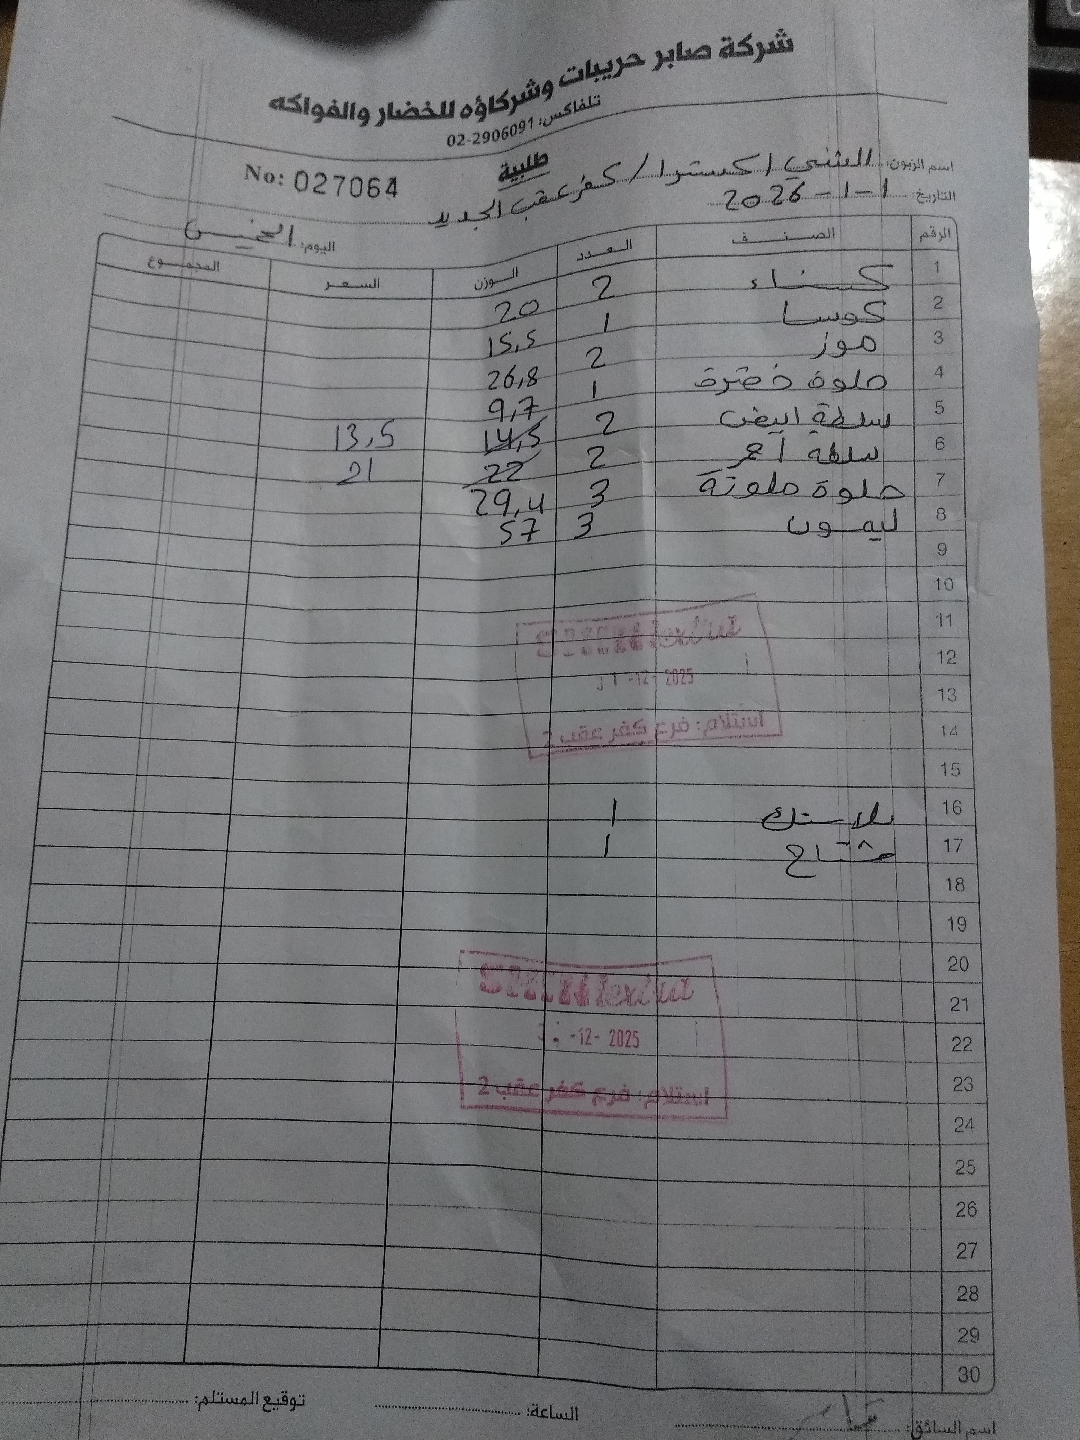 شركة صابر حريبات وشركاؤه للخضار والفواكه
تلفاكس: 02-2906091
طلبية
No: 027064
اسم الزبون: الشني اكسترا / كفر عقب الجديد
التاريخ: 1-1-2026
اليوم: الخميس
الرقم الصنف العدد الوزن السعر المجموع
1 كستناء 2 20
2 كوسا 1 15,5
3 موز 2 26,8
4 حلوة خضرة 1 9,7
5 سلطة ابيض 2 14,5 13,5
6 سلطة احمر 2 22 21
7 حلوة ملونة 3 29,4
8 ليمون 3 57
9
10
11
12
13
14
15
16 بلاستك 1
17 مشتاح 1
18
19
20
21
22
23
24
25
26
27
28
29
30
-12-2025
استلام: فرع كفر عقب 2
-12-2025
استلام: فرع كفر عقب 2
اسم السائق:
الساعة:
توقيع المستلم: